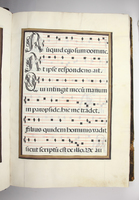 Nunquid ego sum domine.
At ipse respondens ait.
Qui intingit mecum manum
in paropside, hic me tradet,
filius quidem hominis vadit
sicut scriptum est de illo.